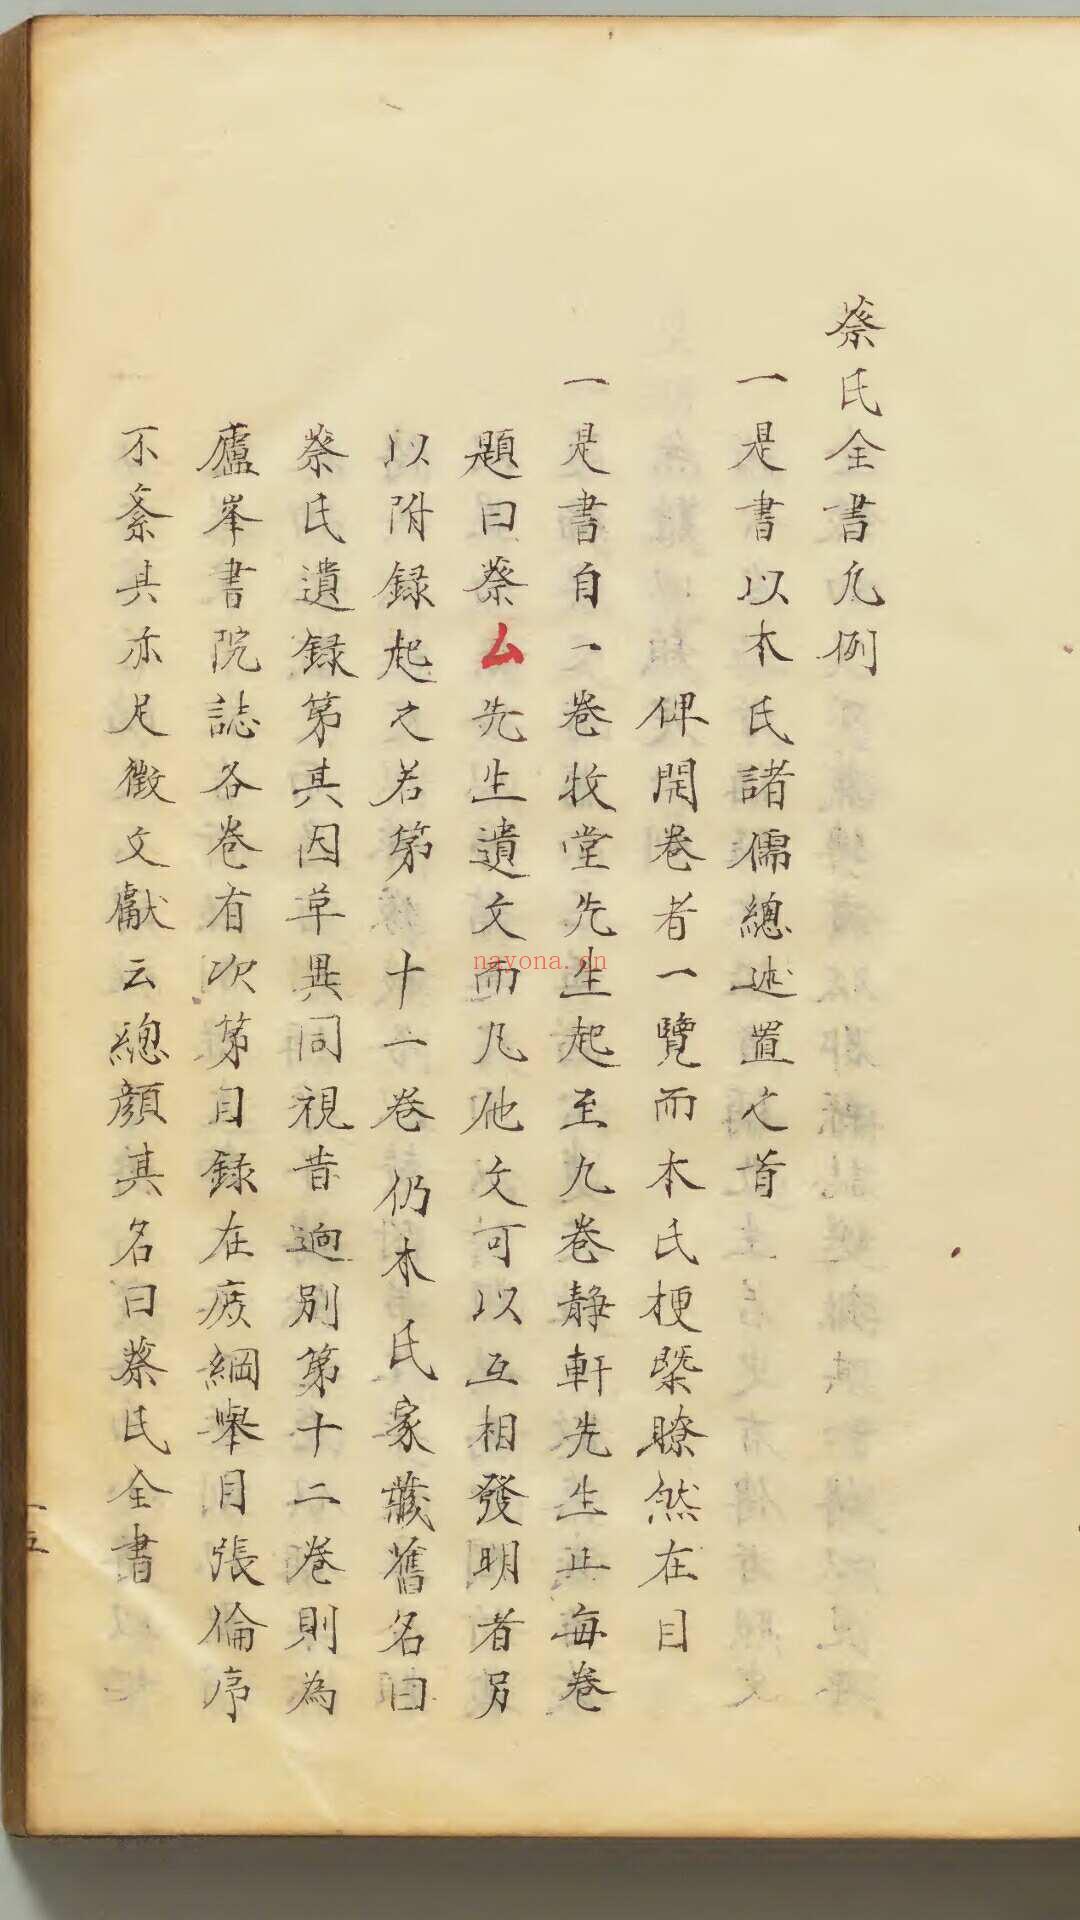 蔡氏全書凡例
一是書以本氏諸儒總述置之首
俾開卷者一覽而本氏梗槩瞭然在目
一是書自一卷牧堂先生起至九卷靜軒先生止每卷
題曰蔡厶先生遺文而凡他文可以互相發明者另
以附録起之若第十一卷仍本氏家藏舊名曰
蔡氏遺録第其因革異同視昔逈別第十二卷則為
廬峯書院誌各卷有次第目録在焉綱舉目張倫序
不紊其亦足徵文獻云總顏其名曰蔡氏全書
nayona.cn